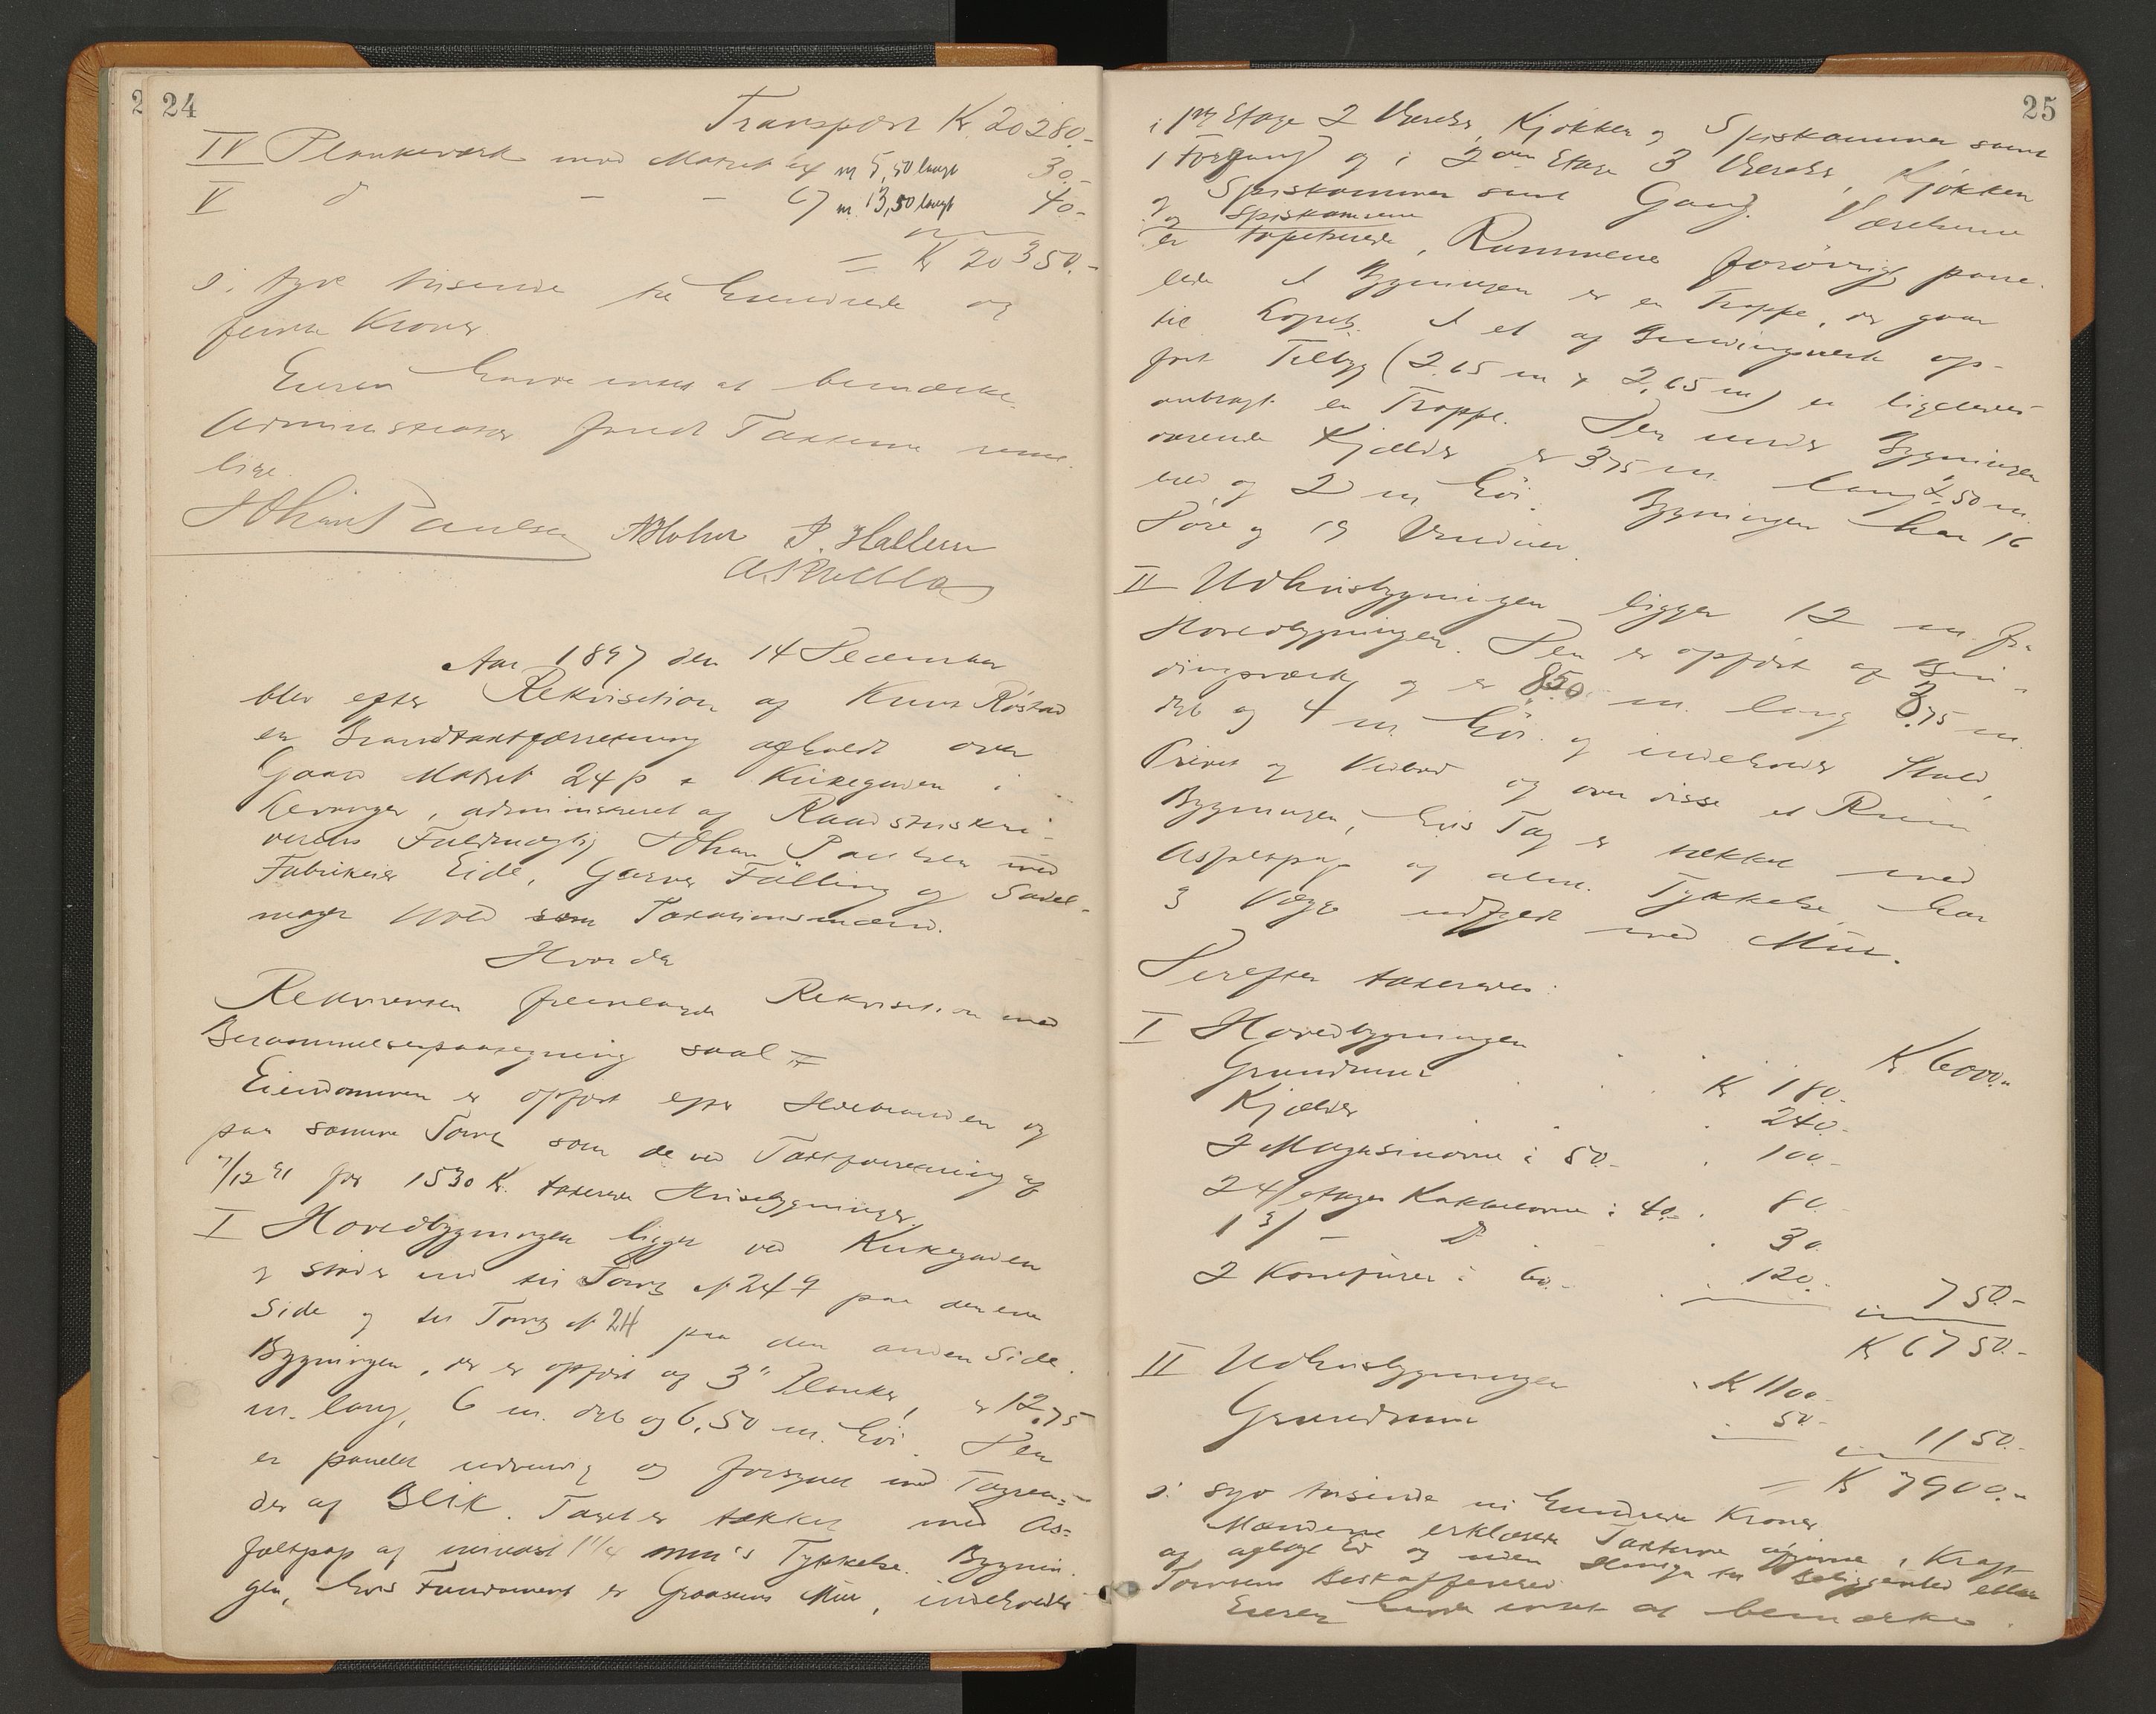 24
Transport Kr. 20280.-
IV Plankeværk mod Matrik 64 m 5,50 langt 30.-
V do - - 67 m. 13,50 langt 40.-
= Kr 20350.-
d: tyve tusende tre hundrede og
femti Kroner.
Eieren havde intet at bemærke.
Administrator fandt Taxterne rime-
lige.
Johan Paulsen P. Hallem
Aar 1897 den 14 December
blev efter Rekvisition af Knut Røstad
en Brandtaxtforretning afholdt over
Gaard Matrik 24 p a Kirkegaden i
Levanger, administreret af Raadstueskri-
verens Fuldmægtig Johan Paulsen med
Fabrikeier Eide, Garver Fölling og Sadel-
mager Wold som Taxationsmænd.
Hvorda
Rekvirenten fremlagde Rekvisition med
Berammelsespaategning saal =
Eiendommen er opført efter Ildebranden og
paa samme Tomt som de ved Taxtforretning af
7/12 91 for 1530 Kr. taxerede Husebygninger.
I Hovedbygningen ligger ved Kirkegaden
og støder ind til Tomt No 249 paa den ene
Side og til Tomt No 24 paa den anden Side.
Bygningen, der er opført af 3" Planker, er 12,75
m. lang, 6 m. dyb og 6,50 m. høi. Den
er panelet udvendig og forsynet med Tagren-
der af Blik. Taget er tækket med As-
faltpap af mindst 1 1/4 mm's Tykkelse. Bygnin-
gen, hvis Fundament er Graastens Mur, indeholder
25
i 1ste Etage 2 Værelser, Kjøkken og Spiskammer samt
1 Forgang og i 2den Etage 3 Værelser, Kjøkken
og Spiskammer samt Gang. Værelserne
og Spiskamrene
er tapetserede, Rummene forøvrigt pane-
lede. I Bygningen er en Trappe, der gaar
til Loftet. I et af Bindingsværk op-
ført Tilbyg (2.65 m x 2,65 m) er ligeledes
anbragt en Trappe. Den under Bygningen
værende Kjælder er 375 m. lang 4,50 m.
bred og 2 m. høi. Bygningen har 16
Døre og 19 Vinduer.
II Udhusbygningen ligger 12 m. fra
Hovedbygningen. Den er opført af Bin-
dingsværk og er 8.50 m. lang 3,75 m.
dyb og 4 m. høi og indeholder Stald,
Privet og Vedbod og over disse et Rum
Bygningen, hvis Tag er tækket med
Asfaltpap af alm. Tykkelse, har
3 Vægge udfyldt med Mur.
Derefter taxeredes:
I Hovedbygningen Kr 6000.-
Grundmur Kr 180.-
Kjælder 240.-
2 Magasinovne à 50.- 100.-
2 4/ etages Kakkelovne à 40.- 80.-
1 3/ - Do 30.
2 Komfurer à 60.- 120.-
750.-
Kr 6750.-
II Udhusbygningen Kr 1100.-
Grundmur 50.-
1150.-
= Kr 7900.-
d: syv tusende ni hundrede Kroner.
Mændene erklærede Taxterne afgivne i Kraft
af aflagt Ed og uden Hensyn til Beliggenhed eller
Tomtens Beskaffenhed.
Eieren havde intet at bemærke.